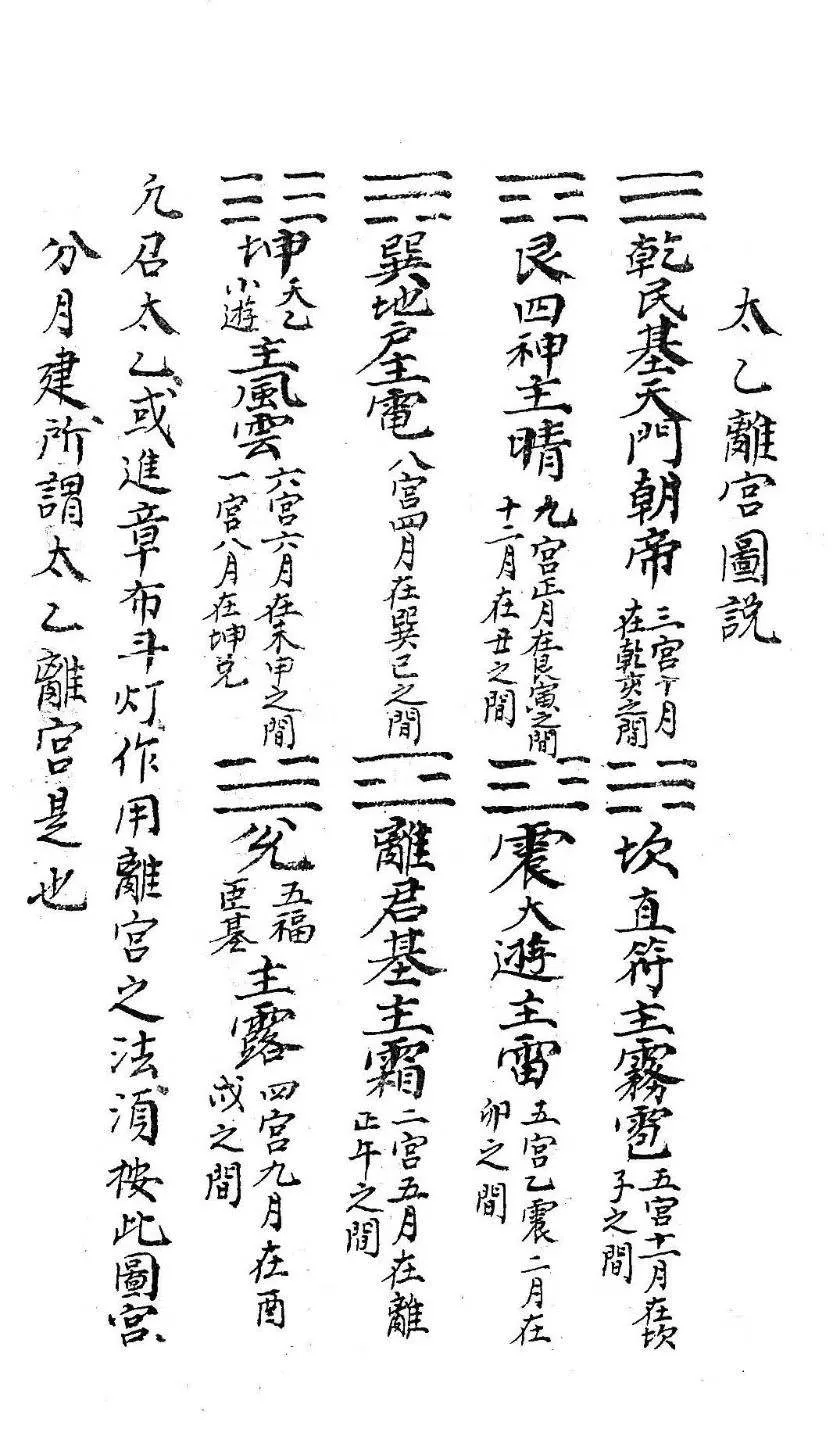 太乙離宮圖説
乾民基天門朝帝 三宮十月在乾亥之間
坎直符主霧雹 五宮十一月在坎子之間
艮四神主晴 九宮正月在艮寅之間十二月在丑之間
震大遊主雷 五宮乙震二月在卯之間
巽地户主電 八宮四月在巽巳之間
離君基主霜 二宮五月在離正午之間
坤天乙小遊主風雲 六宮六月在未申之間一宮八月在坤兑
兑五福臣基主露 四宮九月在酉戌之間
凢召太乙或進章布斗灯作用離宮之法須按此圖宮
分月建所謂太乙離宮是也